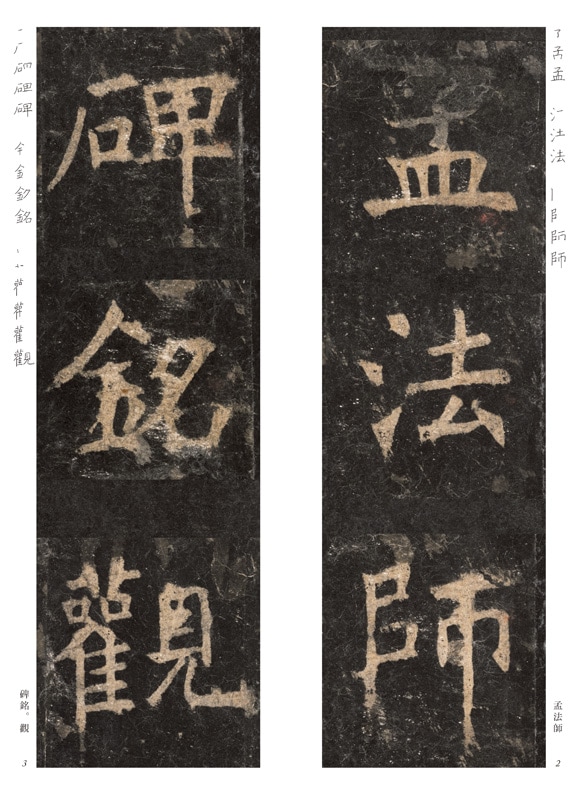 孟法師
碑銘觀
孟法師
2
碑銘。觀
3